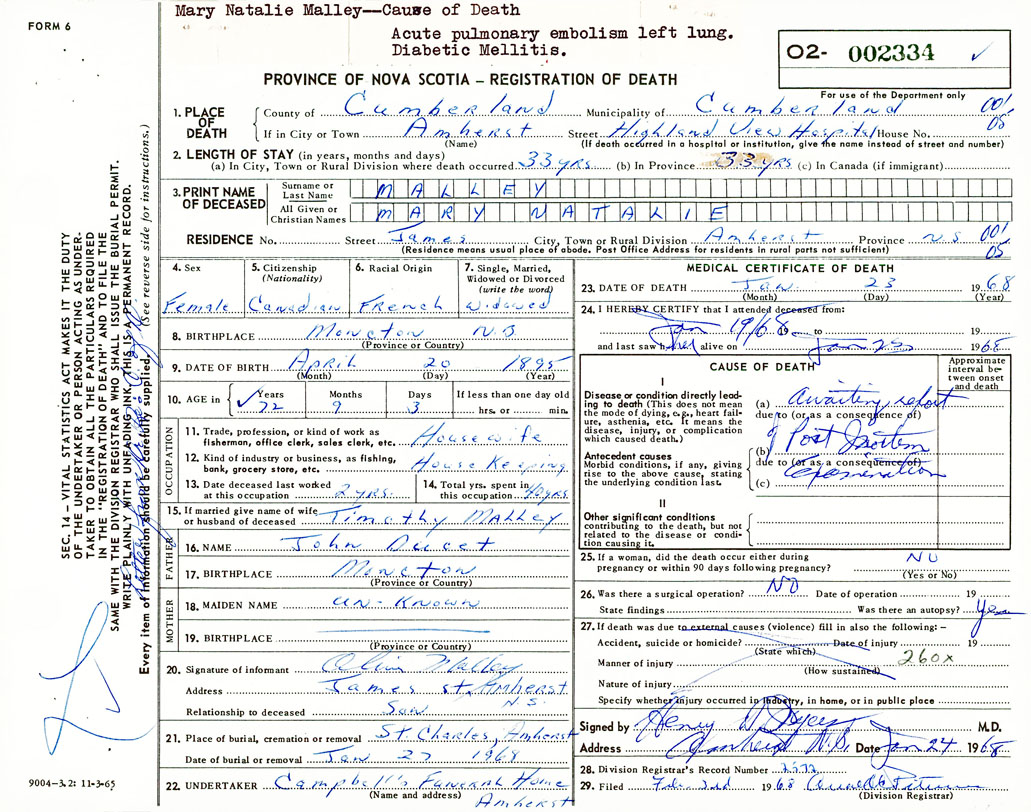 Mary Natalie Malley--Cause of Death
Acute pulmonary embolism left lung.
Diabetic Mellitis.
FORM 6
O2- 002334 ✓
PROVINCE OF NOVA SCOTIA – REGISTRATION OF DEATH
For use of the Department only
1. PLACE OF DEATH { County of Cumberland Municipality of Cumberland 001
If in City or Town Amherst Street Highland View Hospital House No. 05
(Name) (If death occurred in a hospital or institution, give the name instead of street and number)
2. LENGTH OF STAY (in years, months and days)
(a) In City, Town or Rural Division where death occurred 33 yrs. (b) In Province 33 yrs (c) In Canada (if immigrant)
3. PRINT NAME OF DECEASED { Surname or Last Name MALLEY
All Given or Christian Names MARY NATALIE
RESIDENCE No. Street James City, Town or Rural Division Amherst Province N.S 001
(Residence means usual place of abode. Post Office Address for residents in rural parts not sufficient) 05
4. Sex Female
5. Citizenship (Nationality) Canadian
6. Racial Origin French
7. Single, Married, Widowed or Divorced (write the word) Widowed
8. BIRTHPLACE Moncton N.B
(Province or Country)
9. DATE OF BIRTH April 20 1895
(Month) (Day) (Year)
10. AGE in { ✓ Years 72 Months 9 Days 3 If less than one day old hrs. or min.
OCCUPATION
11. Trade, profession, or kind of work as fisherman, office clerk, sales clerk, etc. Housewife
12. Kind of industry or business, as fishing, bank, grocery store, etc. House Keeping
13. Date deceased last worked at this occupation 2 yrs.
14. Total yrs. spent in this occupation 40 yrs
15. If married give name of wife or husband of deceased Timothy Malley
FATHER
16. NAME John
17. BIRTHPLACE Moncton
(Province or Country)
MOTHER
18. MAIDEN NAME un-Known
19. BIRTHPLACE
(Province or Country)
20. Signature of informant Malley
Address James St, Amherst N.S.
Relationship to deceased Son
21. Place of burial, cremation or removal St Charles, Amherst
Date of burial or removal Jan 27 1968
22. UNDERTAKER Campbell's Funeral Home
(Name and address) Amherst
MEDICAL CERTIFICATE OF DEATH
23. DATE OF DEATH Jan. 23 1968
(Month) (Day) (Year)
24. I HEREBY CERTIFY that I attended deceased from:
Jan 19/68 19 to 19
and last saw her alive on Jan 23 1968
CAUSE OF DEATH
Approximate interval between onset and death
I
Disease or condition directly leading to death (This does not mean the mode of dying, e.g., heart failure, asthenia, etc. It means the disease, injury, or complication which caused death.)
(a) Awaiting report
due to (or as a consequence of)
Antecedent causes
Morbid conditions, if any, giving rise to the above cause, stating the underlying condition last.
(b) of Post Mortem
due to (or as a consequence of)
(c) Examination
II
Other significant conditions contributing to the death, but not related to the disease or condition causing it.
25. If a woman, did the death occur either during pregnancy or within 90 days following pregnancy? NO
(Yes or No)
26. Was there a surgical operation? NO Date of operation 19
State findings Was there an autopsy? Yes
27. If death was due to external causes (violence) fill in also the following: –
Accident, suicide or homicide? Date of injury 19
(State which)
Manner of injury 260x
(How sustained)
Nature of injury
Specify whether injury occurred in industry, in home, or in public place
Signed by Henry M.D.
Address Amherst N.S. Date Jan 24 1968
28. Division Registrar's Record Number
29. Filed 1968
(Division Registrar)
SEC. 14 – VITAL STATISTICS ACT MAKES IT THE DUTY
OF THE UNDERTAKER OR PERSON ACTING AS UNDER-
TAKER TO OBTAIN ALL THE PARTICULARS REQUIRED
IN THE "REGISTRATION OF DEATH" AND TO FILE THE
SAME WITH THE DIVISION REGISTRAR WHO SHALL ISSUE THE BURIAL PERMIT.
WRITE PLAINLY WITH UNFADING INK. THIS IS A PERMANENT RECORD.
Every item of information should be carefully supplied. (See reverse side for instructions.)
9004-3.2: 11-3-65